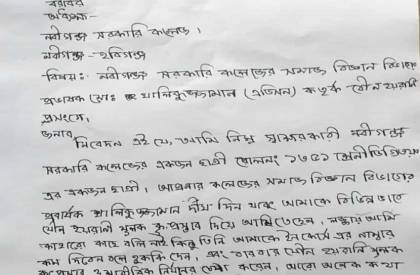 বরাবর
অধ্যক্ষ
নবীগঞ্জ সরকারি কলেজ।
নবীগঞ্জ - হবিগঞ্জ
বিষয়: নবীগঞ্জ সরকারি কলেজের সমাজ বিজ্ঞান বিভাগের
প্রভাষক মোঃ খালিকুজ্জামান কর্তৃক যৌন হয়রানি
প্রসংগে,
জনাব
নিবেদন এই যে, আমি নিম্ন স্বাক্ষরকারী নবীগঞ্জ
সরকারি কলেজের একজন ছাত্রী রোলনং ১৭৫১
এর একজন ছাত্রী। আপনার কলেজের সমাজ বিজ্ঞান বিভাগের
প্রবাষক খালিকুজ্জামান দীর্ঘ দিন যাবৎ আমাকে বিভিন্ন ভাবে
যৌন হয়রানী মূলক কুপ্রস্তাব দিয়ে আসিতেছেন, লজ্জায় আমি
কাহারো কাছে বলি নাই কিন্তু তিনি আমাকে ইনকোর্স এর নাম্বার
কম দিবেন বলে হুমকি দেন, এবং বারবার যৌন হয়রানি মূলক
করেন, আরো অনেক কথা